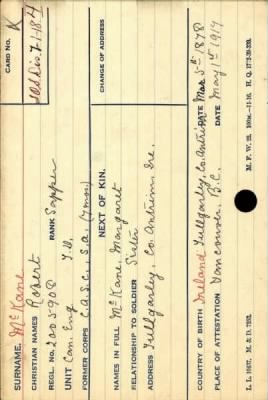 CARD NO. K
SURNAME. McKane
Sld Dis. 7-1-18
CHRISTIAN NAMES Robert
REGL. No. 2005908 RANK Sapper
UNIT Can. Eng. T.D.
FORMER CORPS C.A.S.C., S.A. (7 mos.)
NEXT OF KIN.
CHANGE OF ADDRESS
NAMES IN FULL McKane, Margaret
RELATIONSHIP TO SOLDIER Sister
ADDRESS Tullgarley, Co. Antrim, Ire.
COUNTRY OF BIRTH Ireland Tullgarley, Co. Antrim DATE Mar. 5th 1878
PLACE OF ATTESTATION Vancouver, B.C. DATE May 1st 1917
M. F. W. 22. H. Q. 1772-39-339.